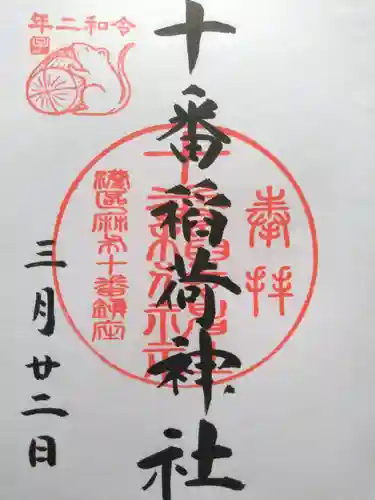 令和二年
十番稲荷神社
奉拝
十番稲荷神社
港区麻布十番鎮座
三月廿二日